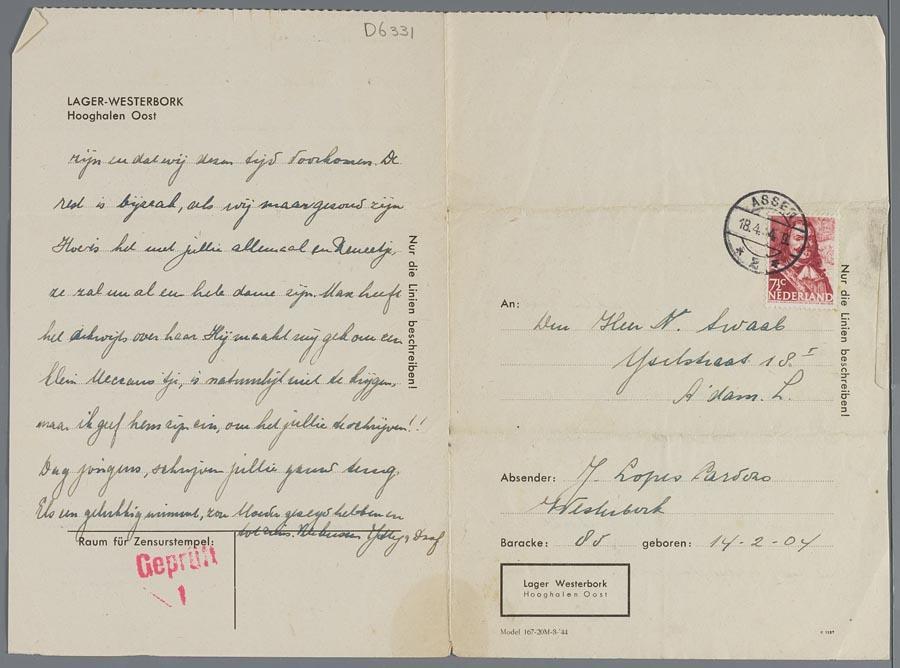 D6331
LAGER-WESTERBORK
Hooghalen Oost
zijn en dat wij dezen tijd doorkomen. De
rest is bijzaak, als wij maar gezond zijn
Hoe is het met jullie allemaal en
ze zal nu al een hele dame zijn. Max heeft
het over haar. Hij maakt mij gek om een
klein is natuurlijk niet te krijgen,
maar ik geef hem zijn zin, om het jullie te schrijven!!
Dag jongens, schrijven jullie gauw terug,
Els een gelukkig nummer, zou Moeder gezegd hebben en
tot ziens.
Nur die Linien beschreiben!
Raum für Zensurstempel:
Geprüft
1
ASSEN
18.4.
2
7½c
NEDERLAND
Nur die Linien beschreiben!
An:
Den Heer N. Swaab
Yselstraat 18 I
A'dam. Z.
Absender: J. Lopes Cardozo
Westerbork
Baracke: 85 geboren: 14-2-04
Lager Westerbork
Hooghalen Oost
Model 167-20M-8-'44